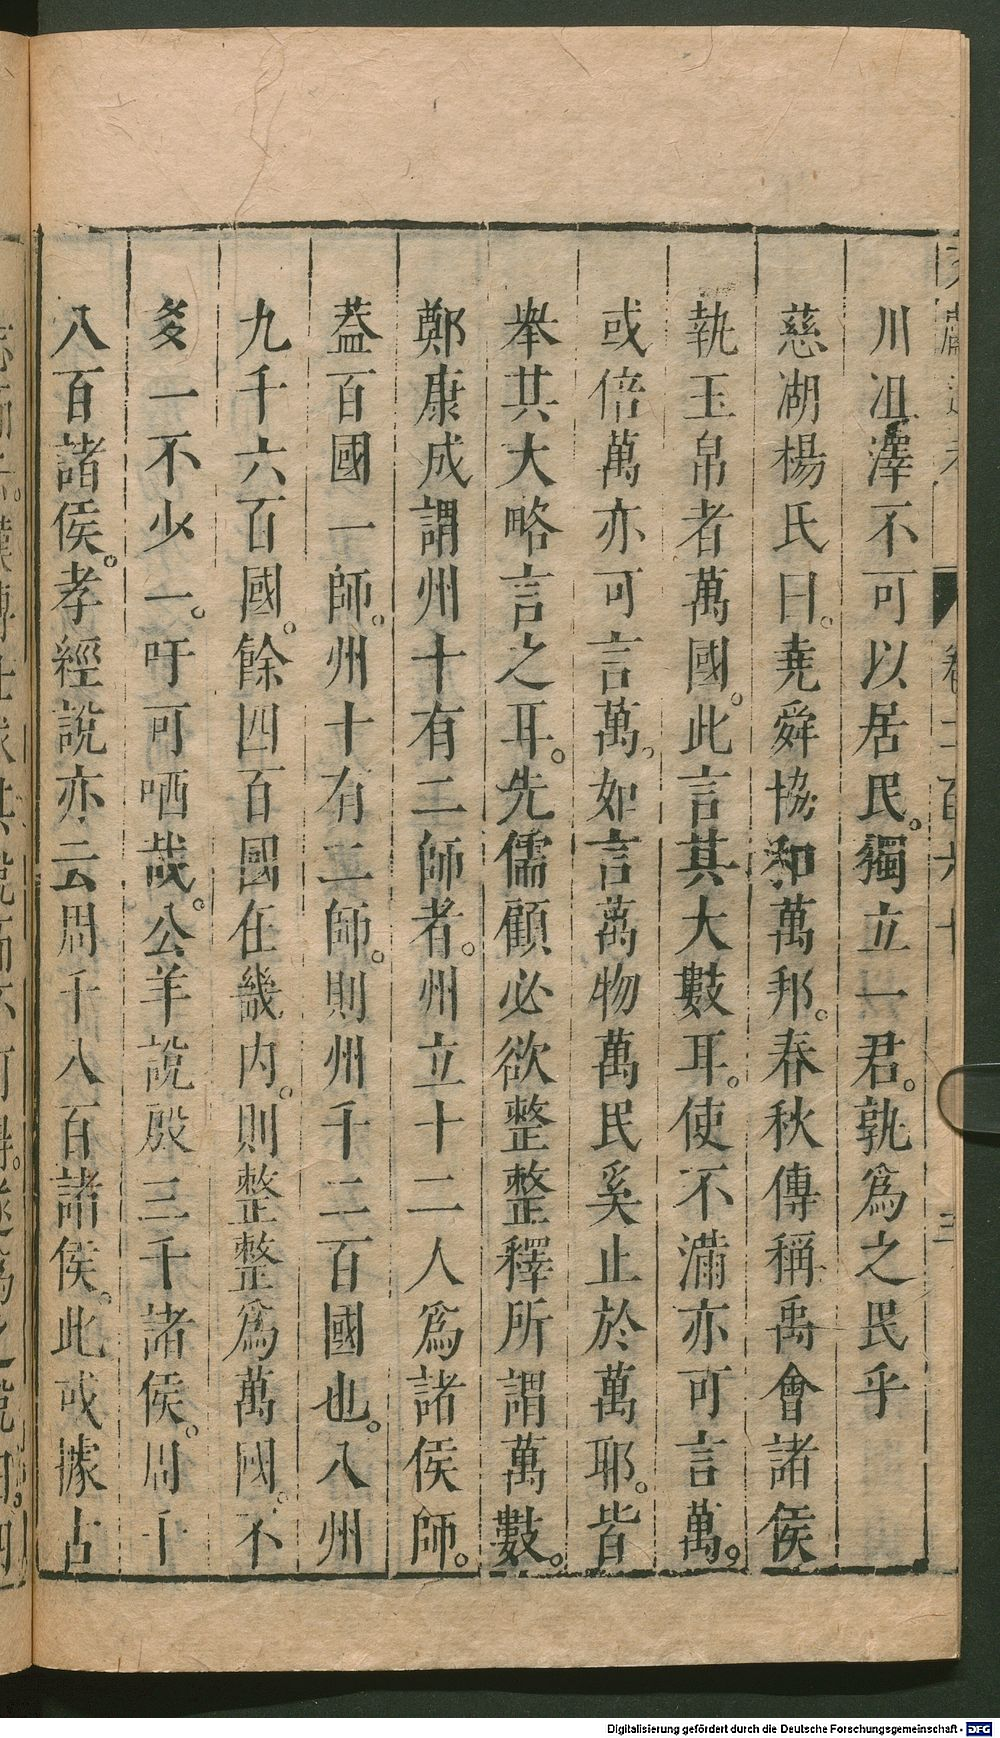 川沮澤不可以居民。獨立一君。孰爲之民乎
慈湖楊氏曰。堯舜協和萬邦。春秋傳稱禹會諸侯
執玉帛者萬國。此言其大數耳。使不滿亦可言萬。
或倍萬亦可言萬。如言萬物萬民奚止於萬耶。皆
舉其大略言之耳。先儒顧必欲整整釋所謂萬數。
鄭康成謂州十有二師者。州立十二人爲諸侯師。
葢百國一師。州十有二師。則州千二百國也。八州
九千六百國。餘四百國在畿内。則整整爲萬國。不
多一不少一。吁可哂哉。公羊說殷三千諸侯。周千
八百諸侯。孝經說亦云周千八百諸侯。此或據古
卷二百六十
三
Digitalisierung gefördert durch die Deutsche Forschungsgemeinschaft - DFG